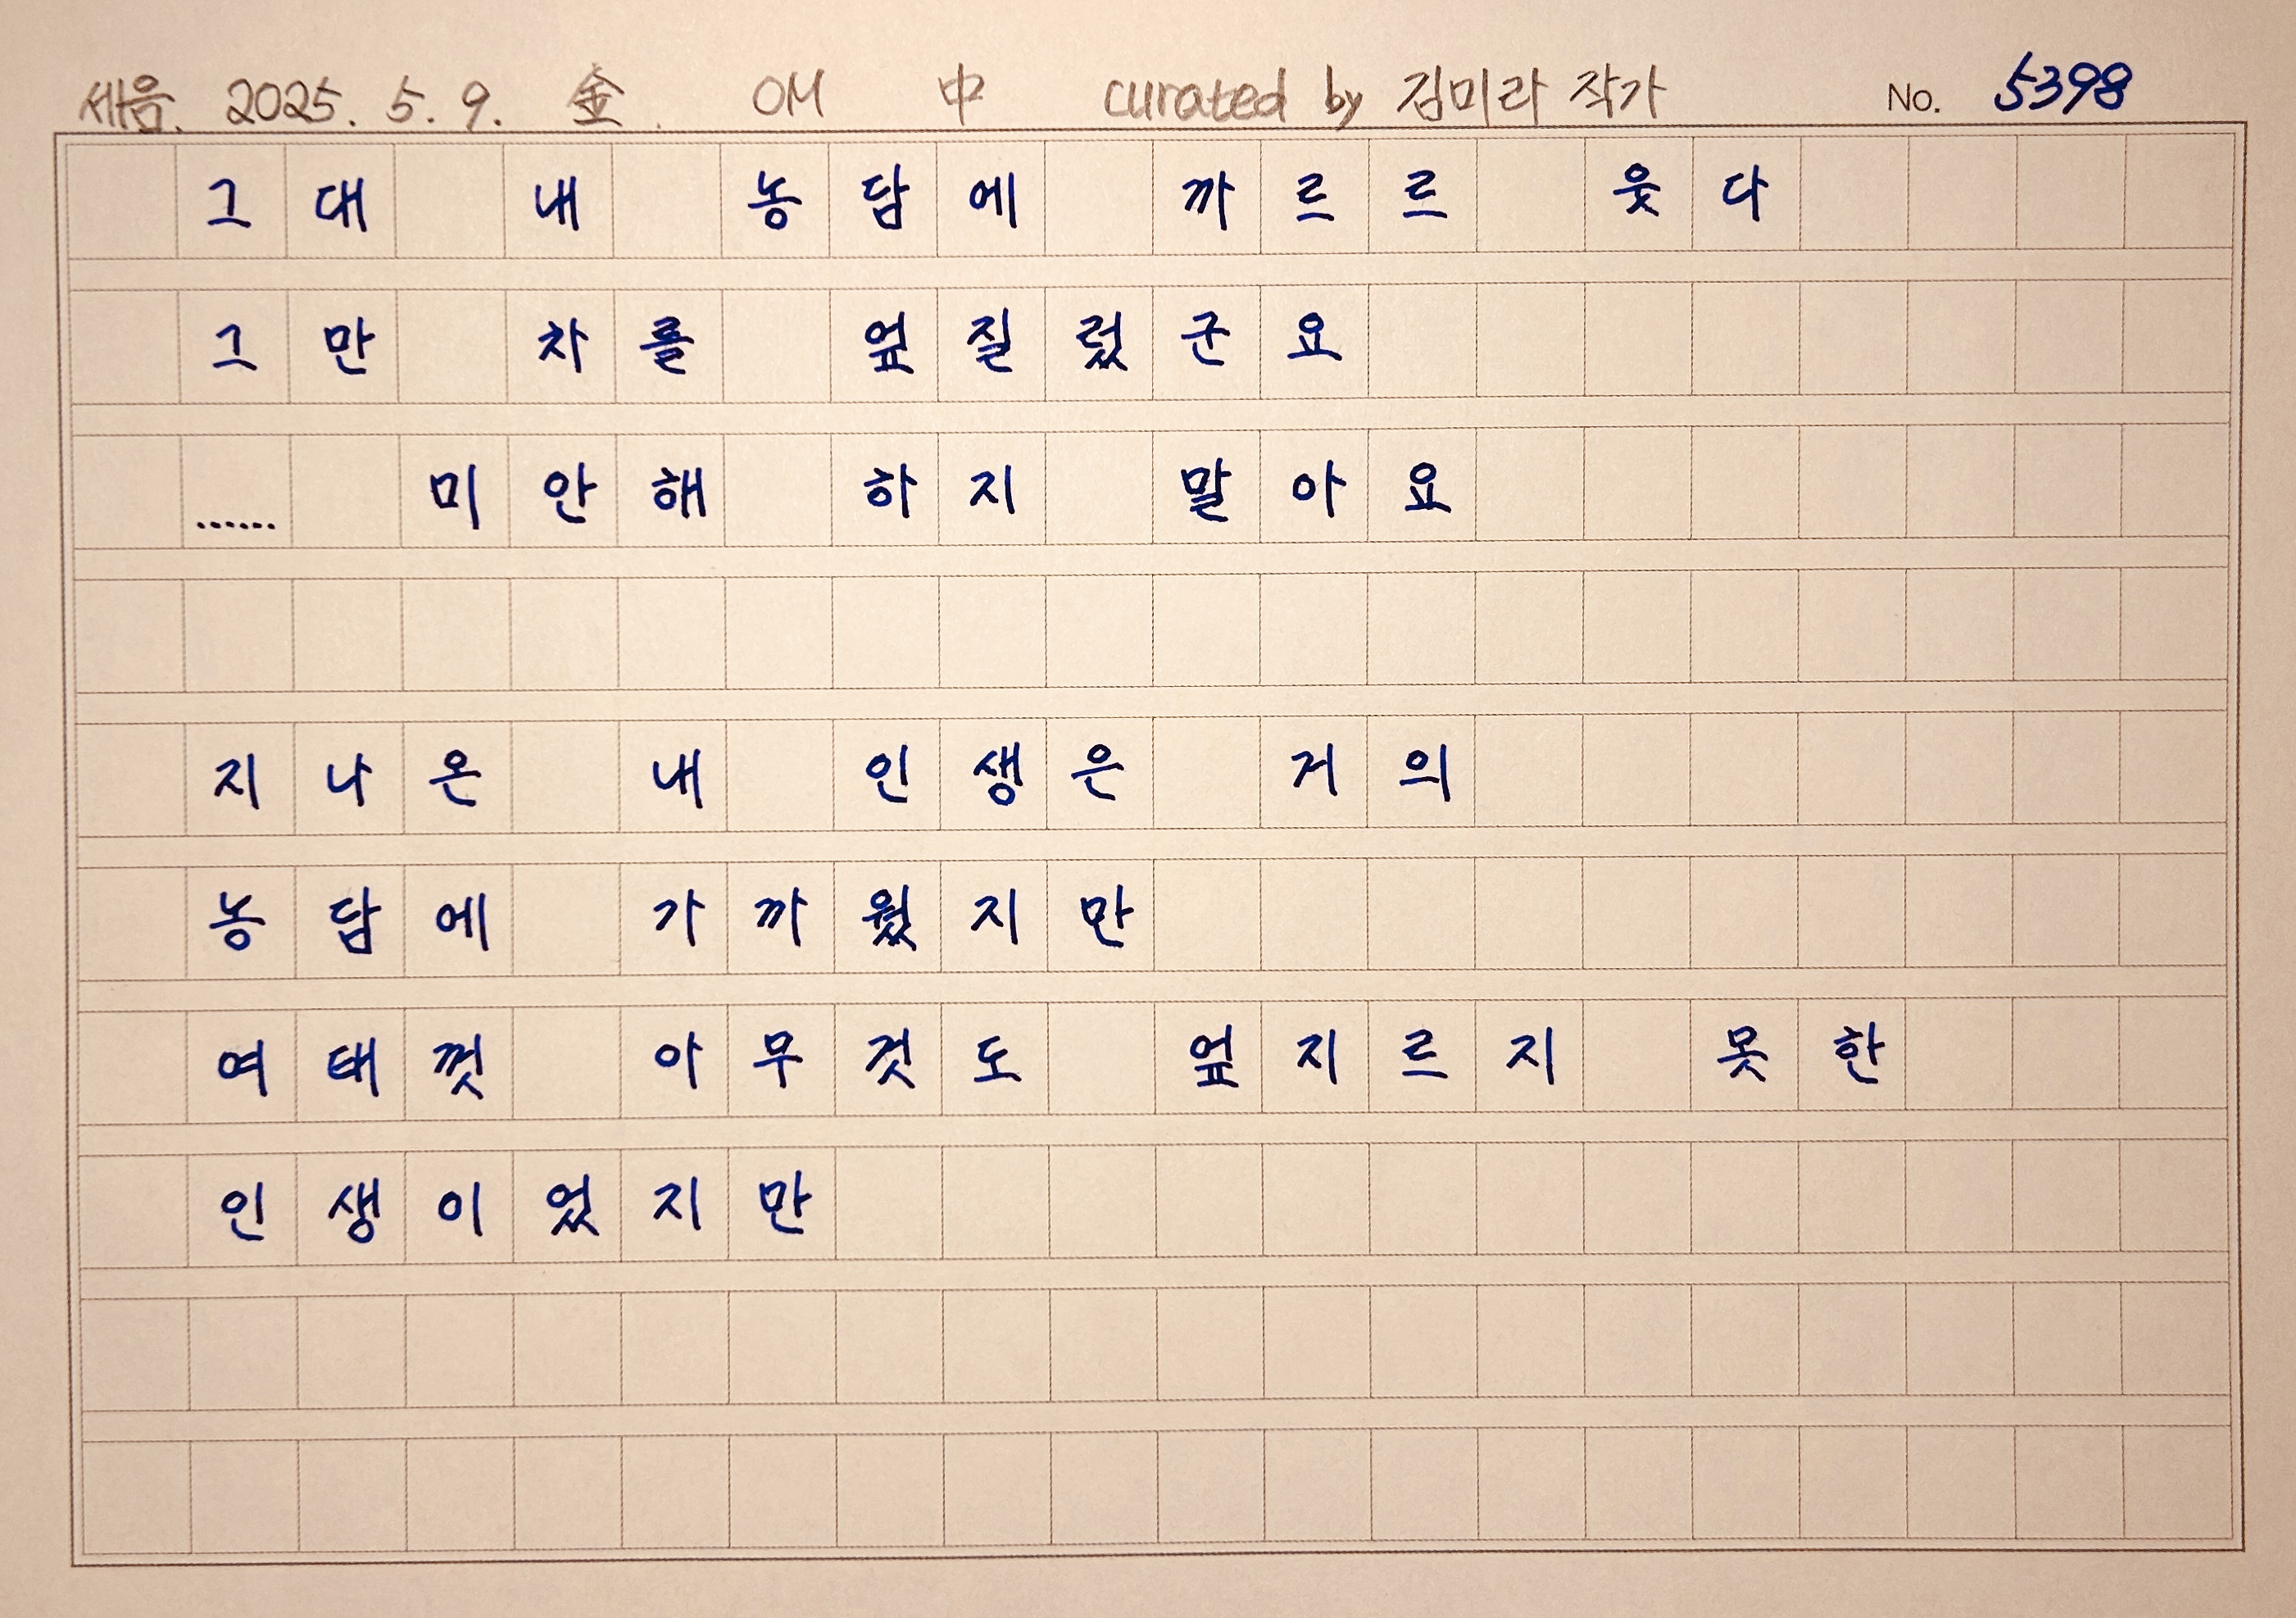 세음. 2025. 5. 9. 金. OM 中 curated by 김미라 작가 No. 5398
그대 내 농담에 까르르 웃다
그만 차를 엎질렀군요
...... 미안해 하지 말아요
지나온 내 인생은 거의
농담에 가까웠지만
여태껏 아무것도 엎지르지 못한
인생이었지만